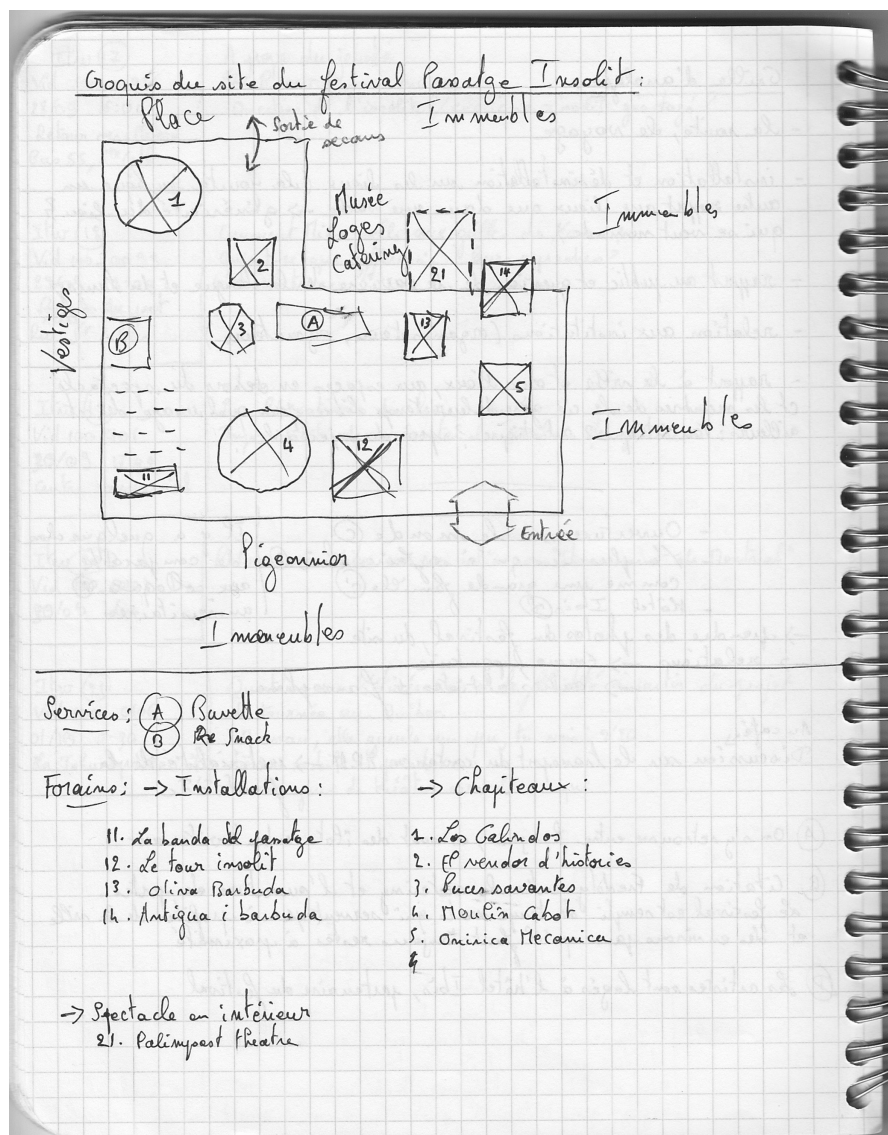 Croquis du site du festival Passatge Insolit :
Place
Immeubles
Sortie de
secours
1
Musée
Loges
Catering
Immeubles
2
21
14
Vestiges
B
3
A
13
5
Immeubles
4
12
11
Entrée
Pigeonnier
Immeubles
Services : A Buvette
B Snack
Forains : -> Installations :
-> Chapiteaux :
11. La banda del passatge
12. Le tour insolit
13. Oliva Barbuda
14. Antigua i barbuda
1. Los Galindos
2. El venedor d'histories
3. Puces savantes
4. Moulin Cabot
5. Onirica Mecanica
-> Spectacle en intérieur
21. Palimpsest theatre